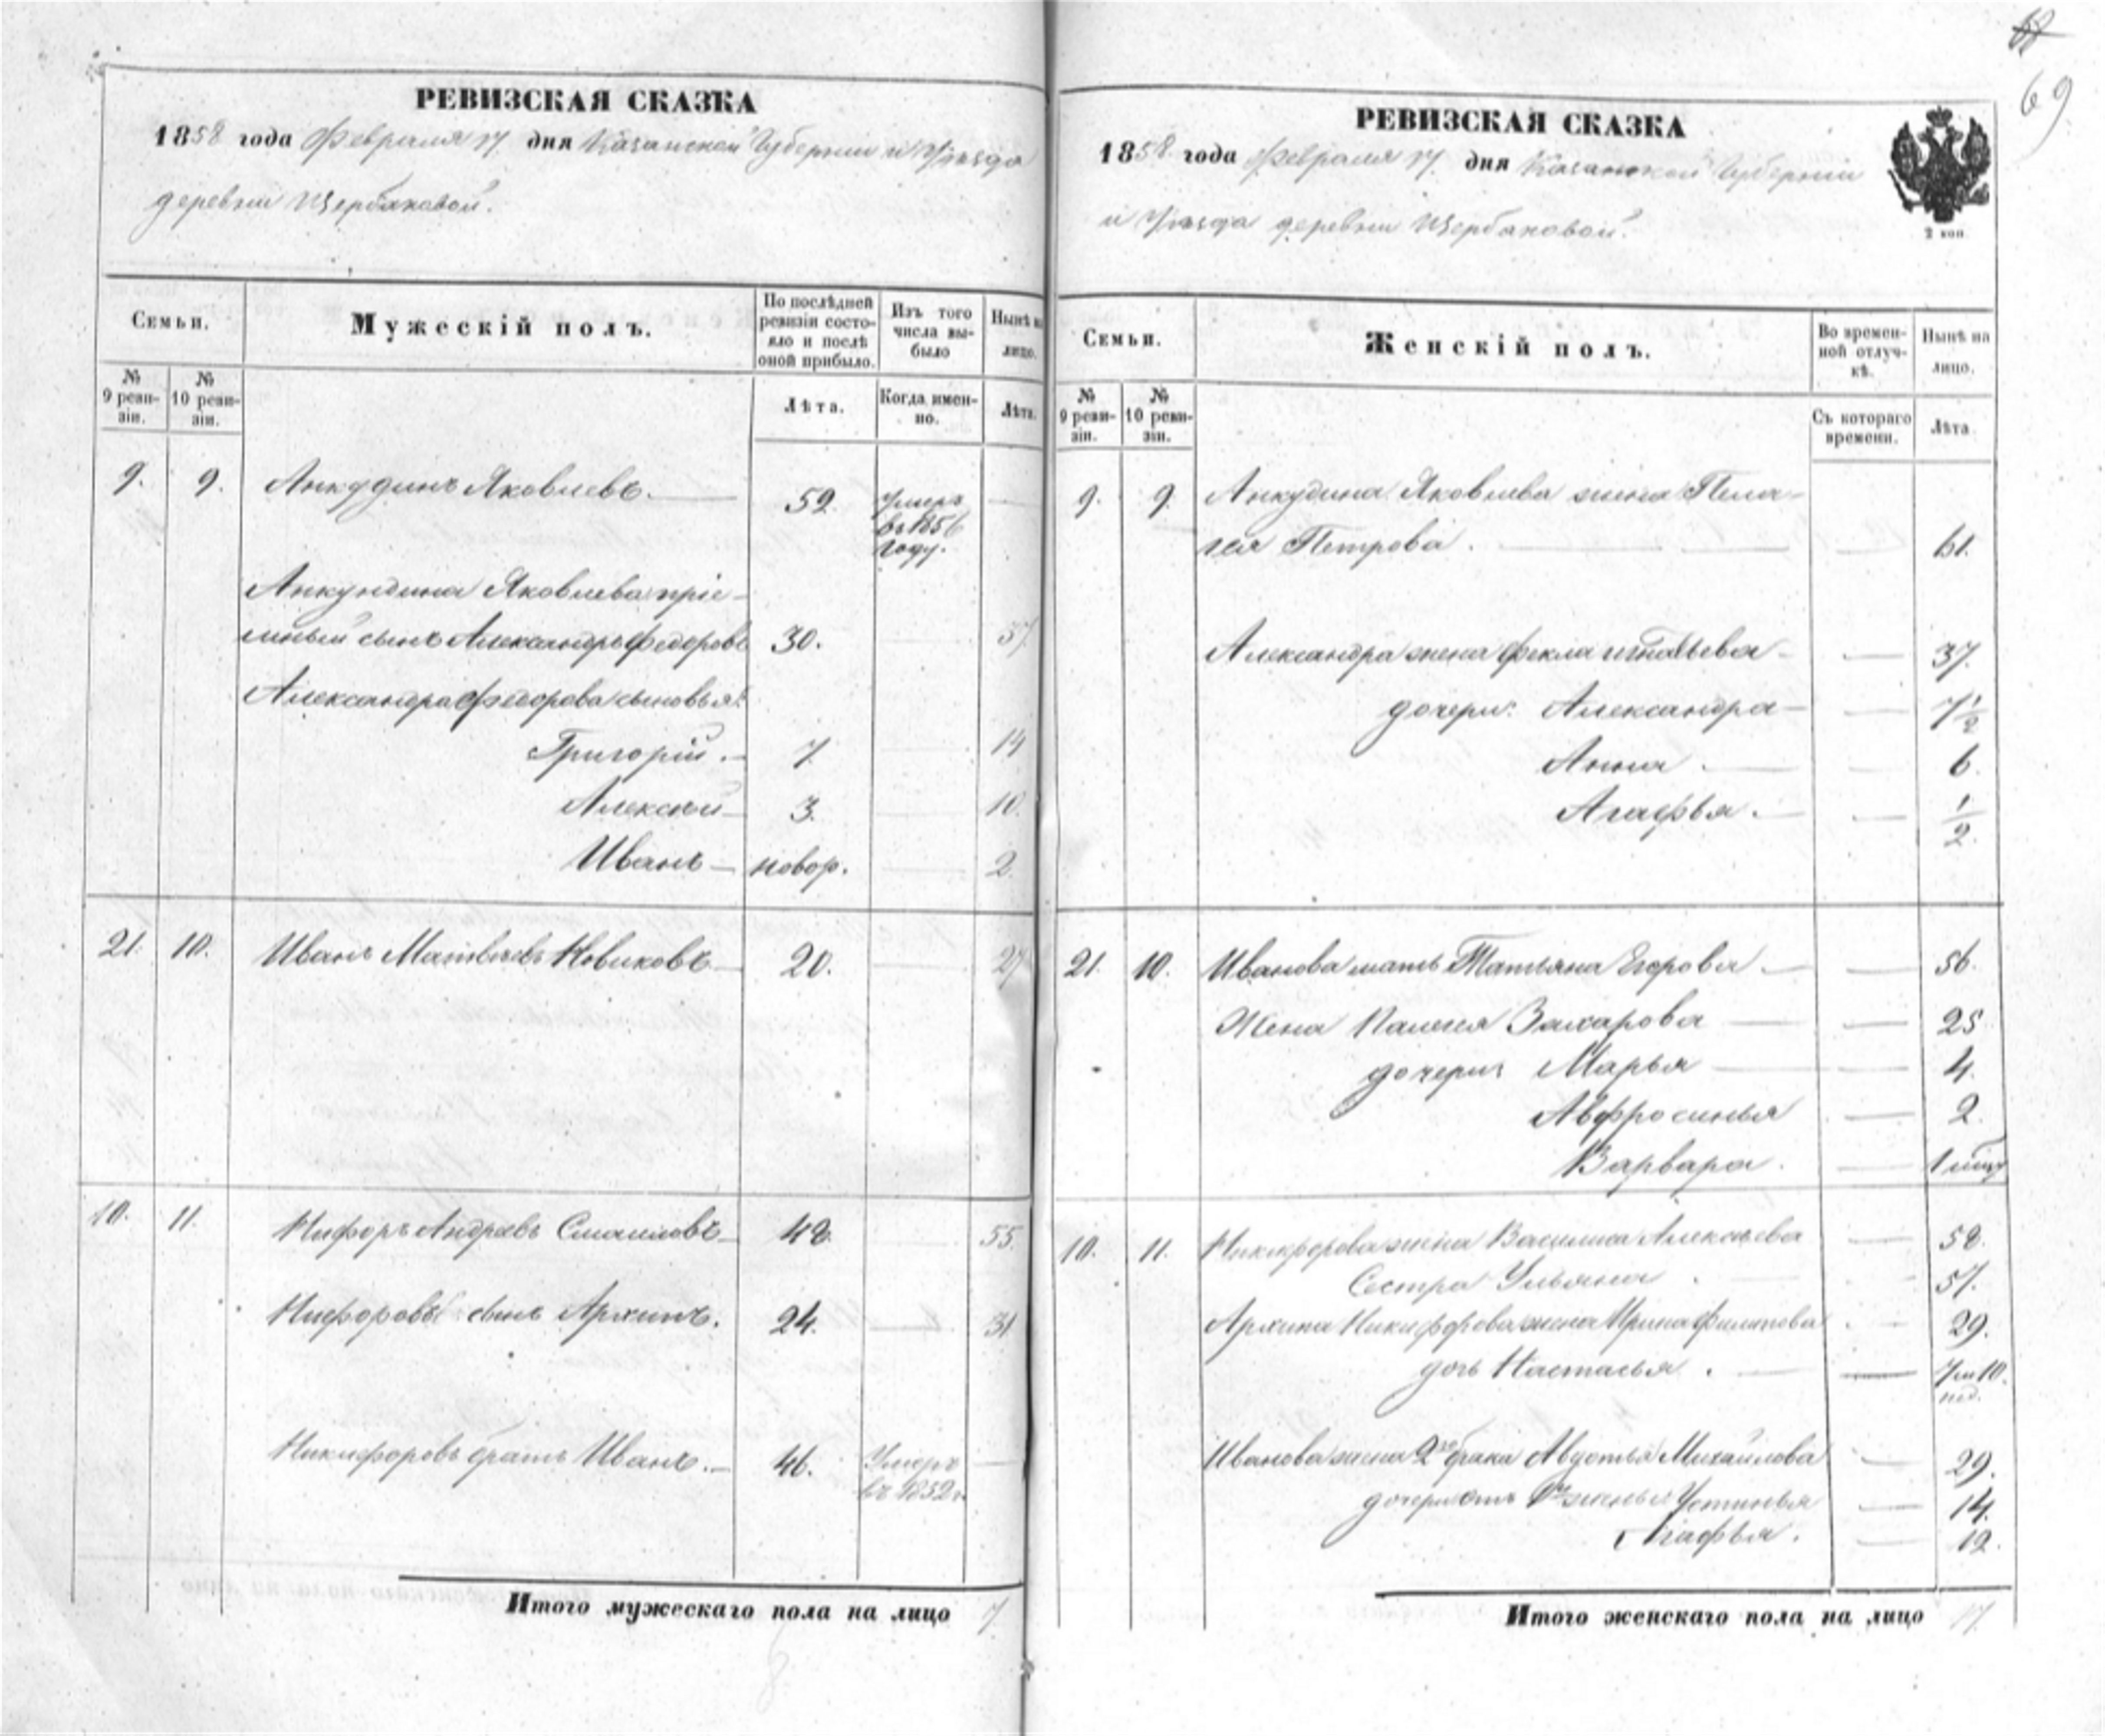 69
РЕВИЗСКАЯ СКАЗКА
1858 года Февраля 17. дня Казанской Губернии и Уѣзда
деревни Щербаковой.
Семьи.
Мужескiй полъ.
По послѣдней ревизiи состояло и послѣ оной прибыло.
Изъ того числа выбыло
Нынѣ на лицо.
№ 9 ревизiи.
№ 10 ревизiи.
Лѣта.
Когда именно.
Лѣта.
9. 9. Анкудинъ Яковлевъ. 59. Умеръ въ 1856 году.
Анкундина Яковлева прiе-
мный сынъ Александръ Федоровъ 30. 37
Александра Федорова сыновья:
Григорiй. 7. 14
Алексѣй 3. 10.
Иванъ новор. 2.
21. 10. Иванъ Матвѣевъ Новиковъ 20. 27
10. 11. Нифоръ Андреевъ 48. 55.
Нифоровъ сынъ Архипъ. 24. 31
Никифоровъ братъ Иванъ. 46. Умеръ въ 1852 г.
Итого мужескаго пола на лицо 7.
РЕВИЗСКАЯ СКАЗКА
1858 года Февраля 17. дня Казанской Губернiи
и Уѣзда деревни Щербаковой.
2 коп.
Семьи.
Женскiй полъ.
Во временной отлучкѣ.
Нынѣ на лицо.
№ 9 ревизiи.
№ 10 ревизiи.
Съ котораго времени.
Лѣта
9. 9. Анкудина Яковлева жена Пела-
гея Петрова. 61.
Александра жена Фекла 37.
дочери: Александра 7½
Анна. 6.
Агафья. ½
21. 10. Иванова мать Татьяна Егорова 56.
Жена Захарова 25
дочери: Марья 4.
Авфросинья 2.
Варвара. 1
10. 11. Никифорова жена Василиса Алексѣева 58.
Сестра Ульяна. 57.
Архипа Никифорова жена Ирина Филипова 29.
дочь Настасья. 10. нед.
Иванова жена 2го брака Авдотья Михайлова 29.
дочери отъ 1й жены Устинья 14.
Агафья. 12.
Итого женскаго пола на лицо 17.